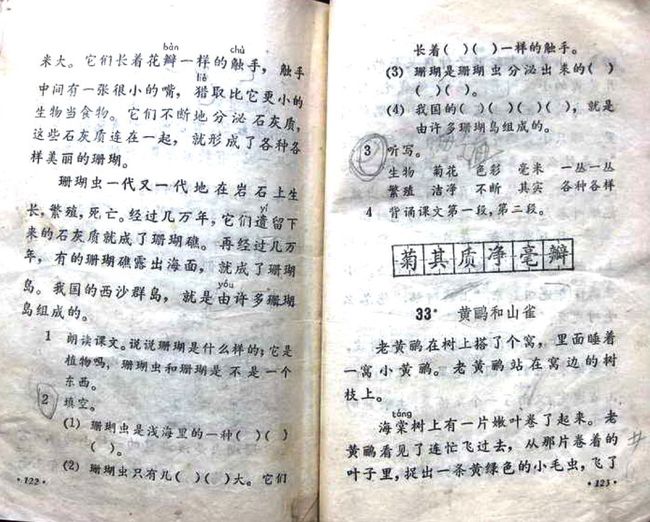 bàn chù
米大。它们长着花瓣一样的触手，触手
liè
中间有一张很小的嘴，猎取比它更小的
生物当食物。它们不断地分泌石灰质，
这些石灰质连在一起，就形成了各种各
样美丽的珊瑚。
珊瑚虫一代又一代地在岩石上生
yí
长，繁殖，死亡。经过几万年，它们遗留下
来的石灰质就成了珊瑚礁。再经过几万
年，有的珊瑚礁露出海面，就成了珊瑚
yóu
岛。我国的西沙群岛，就是由许多珊瑚
岛组成的。
1 朗读课文。说说珊瑚是什么样的；它是
植物吗，珊瑚虫和珊瑚是不是一个
东西。
2 填空。
(1) 珊瑚虫是浅海里的一种( )( )
( )。
(2) 珊瑚虫只有几( )( )大。它们
·122·
长着( )( )一样的触手。
(3) 珊瑚是珊瑚虫分泌出来的( )
( )( )。
(4) 我国的( )( )( )( )，就是
由许多珊瑚岛组成的。
3 听写。
生物 菊花 色彩 毫米 一丛一丛
繁殖 洁净 不断 其实 各种各样
4 背诵课文第一段，第二段。
菊其质净毫瓣
33* 黄鹂和山雀
老黄鹂在树上搭了个窝，里面睡着
一窝小黄鹂。老黄鹂站在窝边的树
枝上。
táng
海棠树上有一片嫩叶卷了起来。老
黄鹂看见了连忙飞过去，从那片卷着的
叶子里，捉出一条黄绿色的小毛虫，飞了
·123·